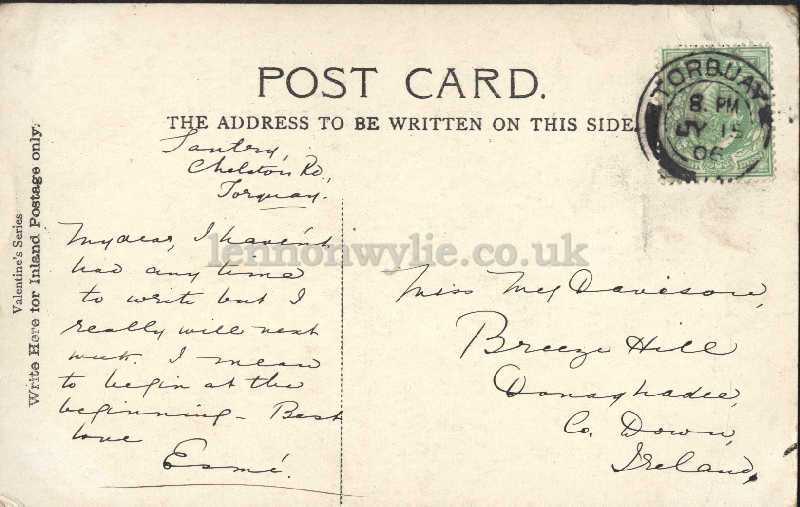 POST CARD.
THE ADDRESS TO BE WRITTEN ON THIS SIDE.
TORQUAY
8. PM
JY 15
06
Valentine's Series
Write Here for Inland Postage only.
Chelston Rd,
Torquay.
My dear, I haven't
had any time
to write but I
really will next
week. I mean
to begin at the
beginning - Best
love
Esmé.
Miss Davison,
Breeze Hill
Donaghadee,
Co. Down,
Ireland,
lennonwylie.co.uk